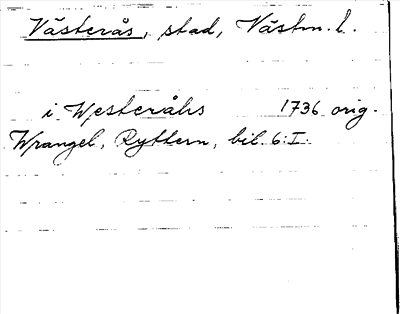 Västerås, stad, Västm. l.
i Westeråhs 1736 orig.
Wrangel, Ryttern, bil. 6:I.